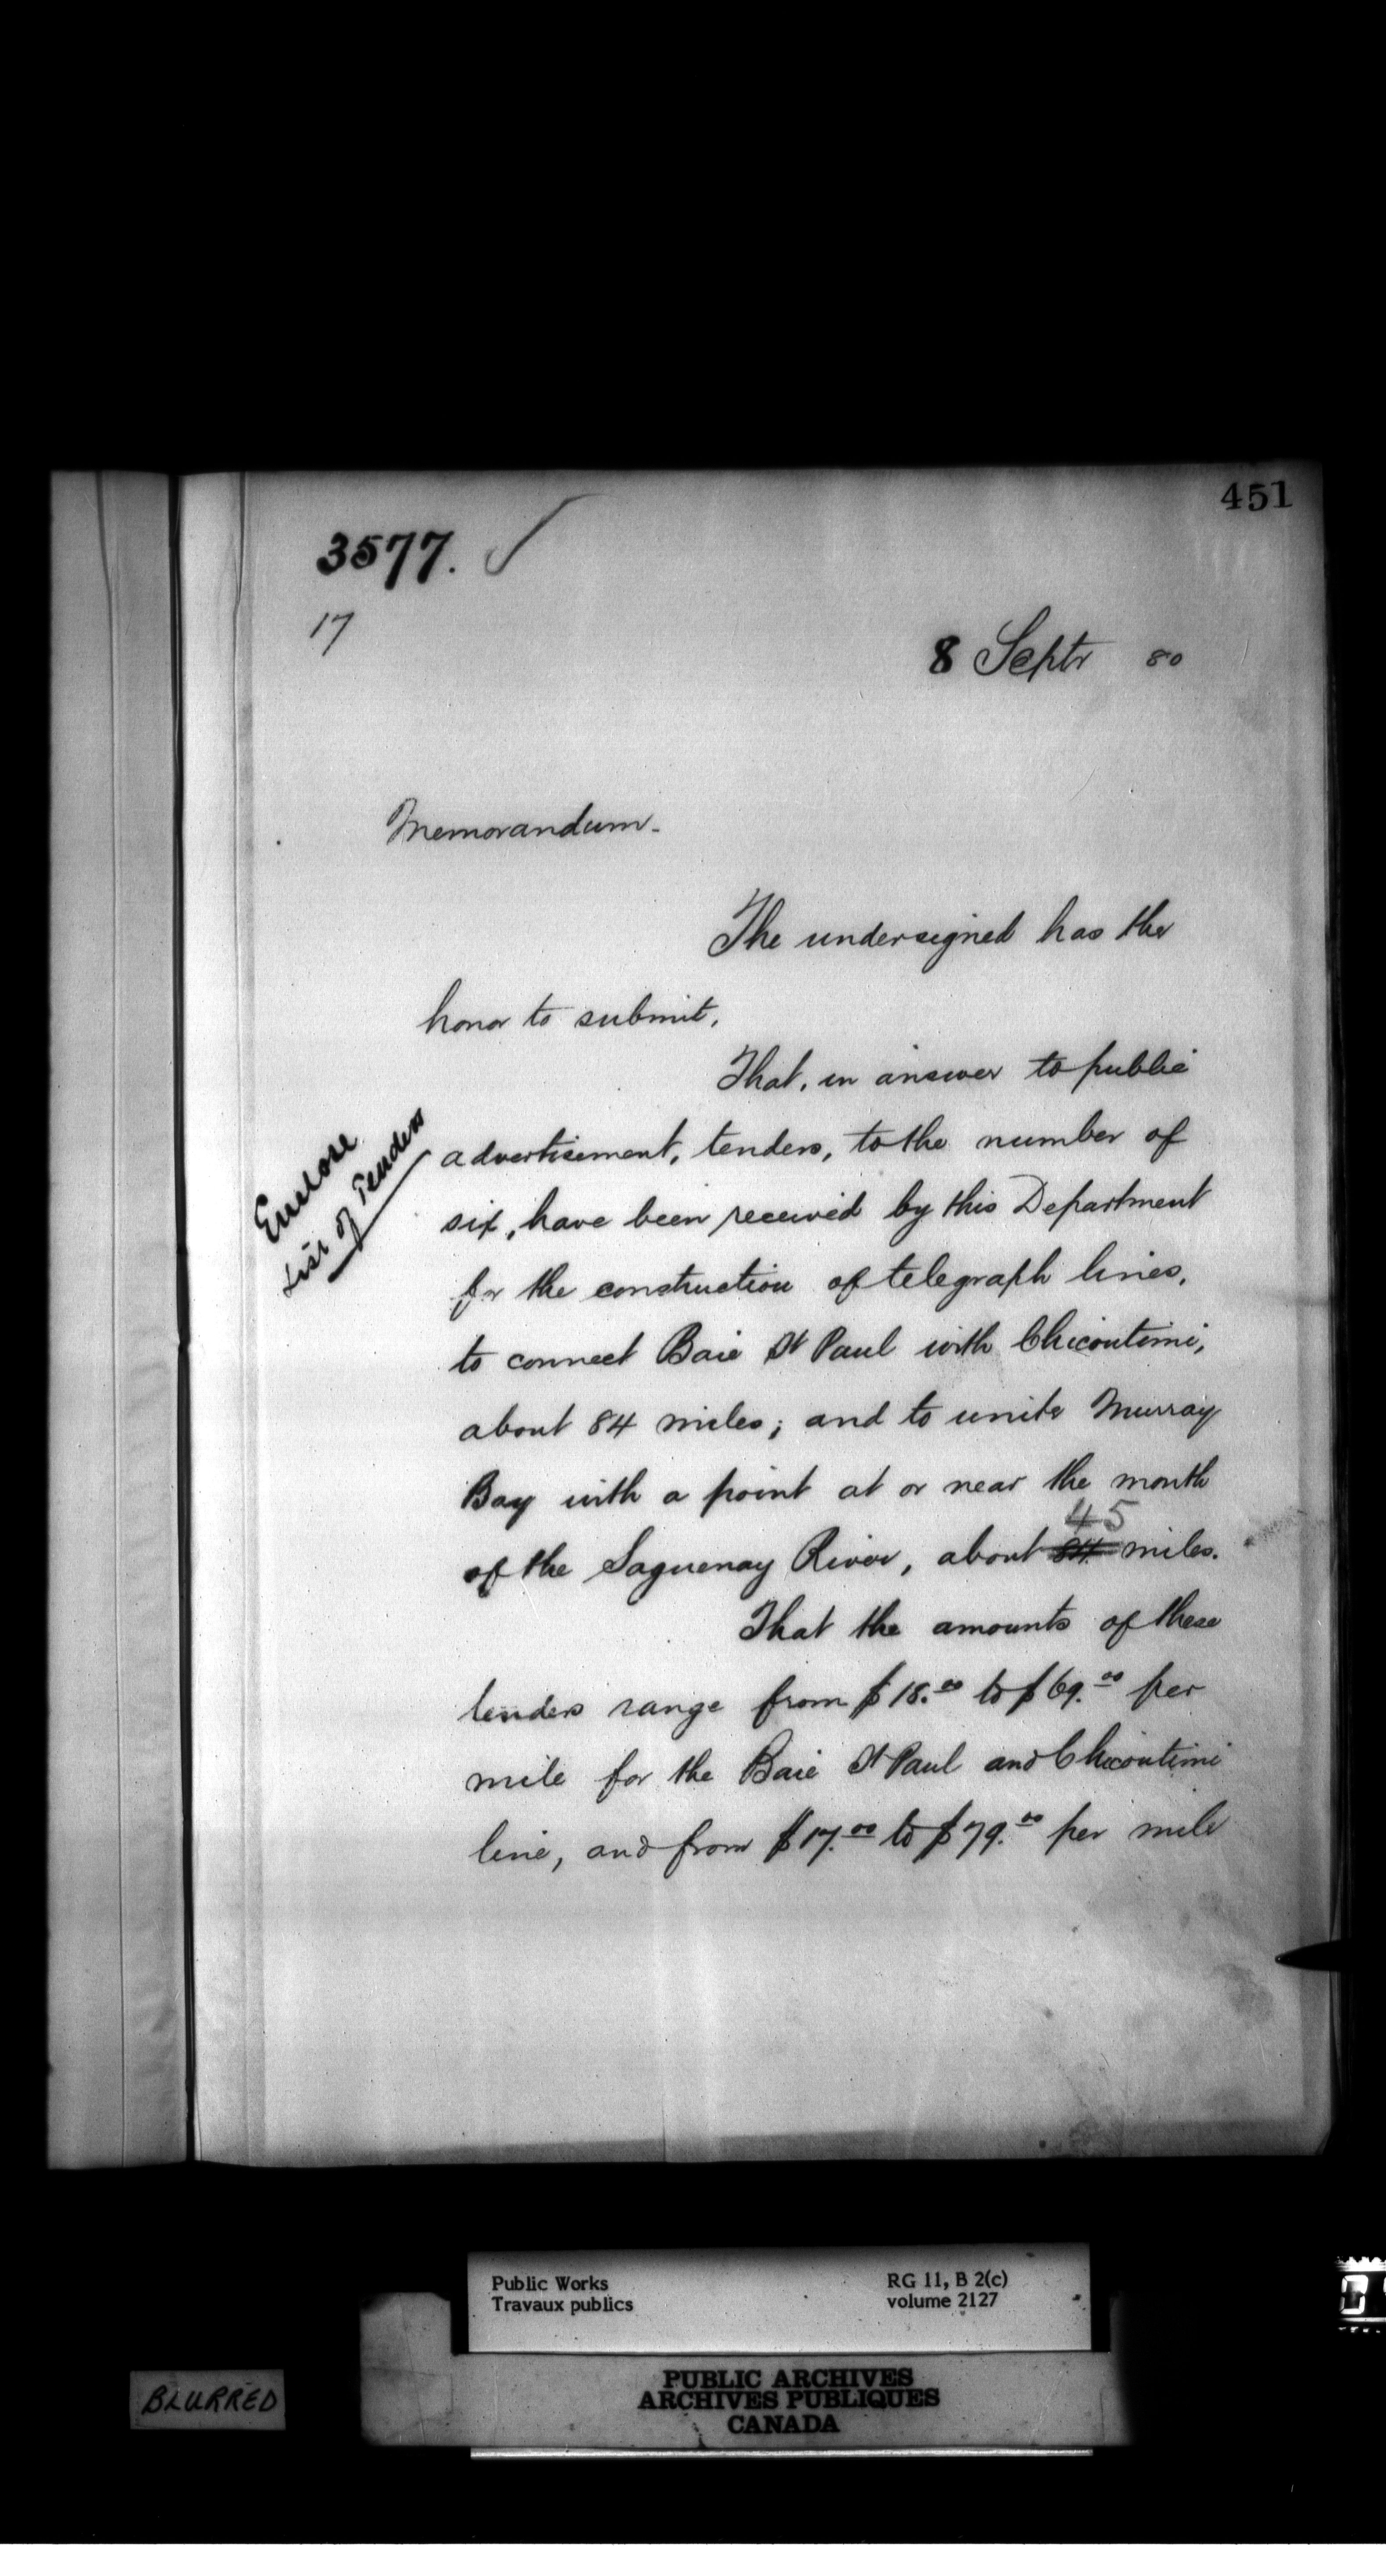 451
3577. ✓
17
8 Septr 80
Memorandum.
The undersigned has the
honor to submit,
That, in answer to public
Enclose
List of Tenders
advertisement, tenders, to the number of
six, have been received by this Department
for the construction of telegraph lines,
to connect Baie St Paul with Chicoutimi,
about 84 miles; and to unite Murray
Bay with a point at or near the mouth
45
of the Saguenay River, about 84 miles.
That the amounts of these
tenders range from $18.00 to $69.00 per
mile for the Baie St Paul and Chicoutimi
line, and from $17.00 to $79.00 per mile
Public Works
Travaux publics
RG 11, B 2(c)
volume 2127
PUBLIC ARCHIVES
ARCHIVES PUBLIQUES
CANADA
BLURRED